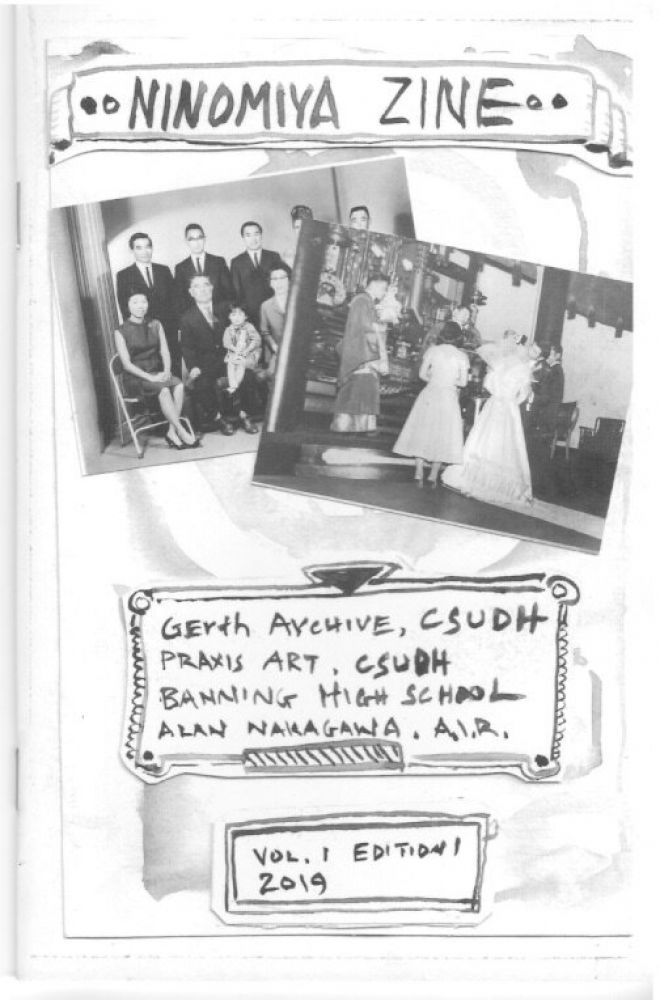 NINOMIYA ZINE
GErth ArCHIVE, CSUDH
PRAXIS ART, CSUDH
BANNING HIGH SCHOOL
ALAN NAKAGAWA. A.I.R.
VOL. 1 EDITION 1
2019